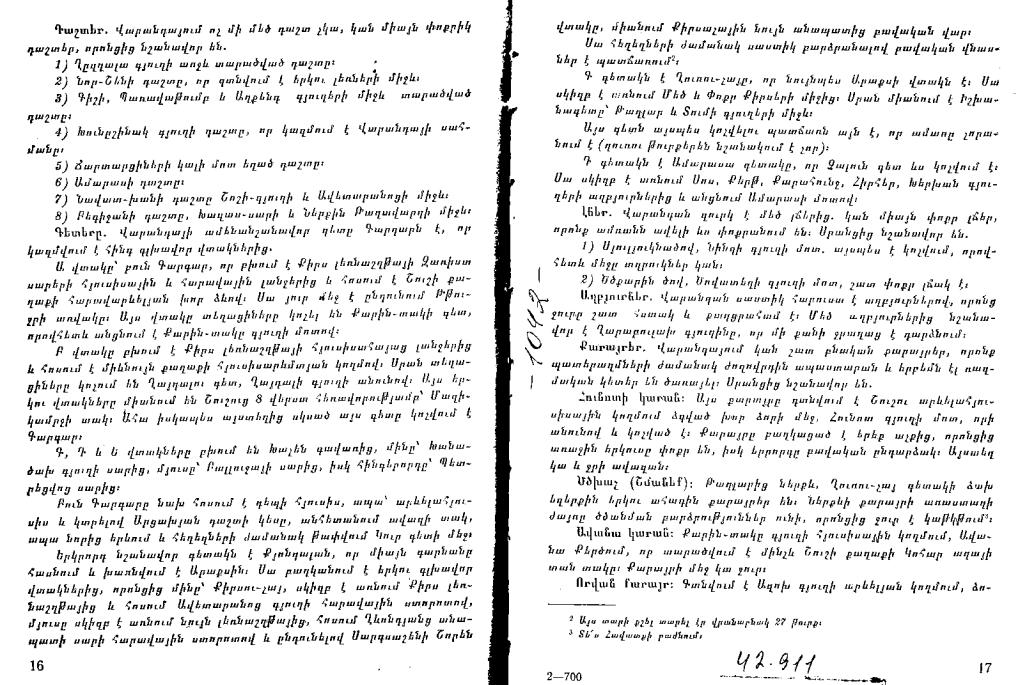 Դաշտեր. Վարանդայում ոչ մի մեծ դաշտ չկա, կան միայն փոքրիկ
դաշտեր, որոնցից նշանավոր են.
1) Ղըզղալա գյուղի առջև տարածված դաշտը:
2) Նոր-Շենի դաշտը, որ գտնվում է երկու լեռների միջև:
3) Գիշի, Պառավաթումբ և Աղքենդ գյուղերի միջև տարածված
դաշտը:
4) Խունըշինակ գյուղի դաշտը, որ կազմում է Վարանդայի սահ-
մանը:
5) Ճարտարցիների կալի մոտ եղած դաշտը:
6) Ամարասի դաշտը:
7) Նավատ-խանի դաշտը Շոշի-գյուղի և Ավետարանոցի միջև:
8) Բեգիջանի դաշտը, Խազազ-սարի և Ներքին Թաղավարդի միջև:
Գետերը. Վարանդայի ամենանշանավոր գետը Գարգարն է, որ
կազմվում է հինգ գլխավոր վտակներից.
Ա վտակը՝ բուն Գարգար, որ բխում է Քիրս լեռնաշղթայի Զառիստ
սարերի հյուսիսային և հարավային լանջերից և հոսում է Շուշի քա-
ղաքի հարավարևելյան խոր ձևով: Սա յուր մեջ է ընդունում Թթու-
ջրի առվակը: Այս վտակը տեղացիները կոչել են Քարին-տակի գետ,
որովհետև անցնում է Քարին-տակը գյուղի մոտով:
Բ վտակը բխում է Քիրս լեռնաշղթայի հյուսիսահայաց լանջերից
և հոսում է միևնույն քաղաքի հյուսիսարևմտյան կողմով: Սրան տեղա-
ցիները կոչում են Ղայդալու գետ, Ղայդալի գյուղի անունով: Այս եր-
կու վտակները միանում են Շուշուց 8 վերստ հեռավորությամբ՝ Մազի-
կամրջի տակ: Ահա իսկապես այստեղից սկսած այս գետը կոչվում է
Գարգար:
Գ, Դ և Ե վտակները բխում են Խաչեն գավառից, մինը՝ Խանա-
ծախ գյուղի սարից, մյուսը՝ Բալլուջայի սարից, իսկ հինգերորդը՝ Պետ-
րեցվոց սարից:
Բուն Գարգարը նախ հոսում է դեպի հյուսիս, ապա՝ արևելահյու-
սիս և կտրելով Արցախյան դաշտի կեսը, անհետանում ավազի տակ,
ապա նորից երևում և հեղեղների ժամանակ թափվում Կուր գետի մեջ:
Երկրորդ նշանավոր գետակն է Քյոնդալան, որ միայն գարնանը
հասնում և խառնվում է Արաքսին: Սա բաղկանում է երկու գլխավոր
վտակներից, որոնցից մինը՝ Քիրսու-չայ, սկիզբ է առնում Քիրս լեռ-
նաշղթայից և հոսում Ավետարանոց գյուղի հարավային ստորոտով,
մյուսը սկիզբ է առնում նույն լեռնաշղթայից, հոսում Ղևոնդյանց անա-
պատի սարի հարավային ստորոտով և ընդունելով Սարգսաշենի Շորեն
16
վտակը, միանում Քիրսաչային նույն անապատից բավական վար:
Սա հեղեղների ժամանակ սաստիկ բարձրանալով բավական վնաս-
ներ է պատճառում²:
Գ գետակն է Ղուռու-չայը, որ նույնպես Արաքսի վտակն է: Սա
սկիզբ է առնում Մեծ և Փոքր Քիրսերի միջից: Սրան միանում է Իշխա-
նագետը՝ Թաղլար և Տումի գյուղերի միջև:
Այս գետն այսպես կոչվելու պատճառն այն է, որ ամառը չորա-
նում է (ղուռու թուրքերեն նշանակում է չոր):
Դ գետակն է Ամարասա գետակը, որ Չայուն գետ ևս կոչվում է:
Սա սկիզբ է առնում Սոս, Քերթ, Քարահունջ, Հիրհեր, Խերխան գյու-
ղերի աղբյուրներից և անցնում Ամարասի մոտով:
Լճեր. Վարանդան զուրկ է մեծ լճերից. կան միայն փոքր լճեր,
որոնք ամառնն ավելի ևս փոքրանում են: Սրանցից նշանավոր են.
1) Սյուլյուկնածով, Նինգի գյուղի մոտ. այսպես է կոչվում, որով-
հետև մեջը տզրուկներ կան:
2) Ծծքարին ծով, Նովատեղի գյուղի մոտ, շատ փոքր լճակ է:
Աղբյուրներ. Վարանդան սաստիկ հարուստ է աղբյուրներով, որոնց
ջուրը շատ հստակ և քաղցրահամ է: Մեծ աղբյուրներից նշանա-
վոր է Ղարաբուլախ գյուղինը, որ մի քանի ջրաղաց է դարձնում:
Քարայրեր. Վարանդայում կան շատ բնական քարայրեր, որոնք
պատերազմների ժամանակ ժողովրդին ապաստարան և երբեմն էլ ռազ-
մական կետեր են ծառայել: Սրանցից նշանավոր են.
Հունոտի կարան: Այս քարայրը գտնվում է Շուշու արևելահյու-
սիսային կողմում ձգված խոր ձորի մեջ, Հունոտ գյուղի մոտ, որի
անունով և կոչված է: Քարայրը բաղկացած է երեք աչքից, որոնցից
առաջին երկուսը փոքր են, իսկ երրորդը բավական ընդարձակ: Այստեղ
կա և ջրի ավազան:
Մծխաչ (Շմանեք): Թաղլարից ներքև, Ղուռու-չայ գետակի ձախ
եզերքին երկու ահագին քարայրեր են: Ներքևի քարայրի առաստաղի
ժայռը ծծանման բարձրություններ ունի, որոնցից ջուր է կաթկթում³:
Ավանա կարան: Քարին-տակը գյուղի հյուսիսային կողմում, Ավա-
նա Քերծում, որ տարածվում է մինչև Շուշի քաղաքի Կոհար աղայի
տան տակը: Քարայրի մեջ կա ջուր:
Որվան քարայր: Գտնվում է Ազոխ գյուղի արևելյան կողմում, ձո-
² Այս տարի քշել տարել էր վրանաբնակ 27 թուրք:
³ Տե՛ս Հավատքի բաժնում:
2—700
17
– 1042 –
42.911